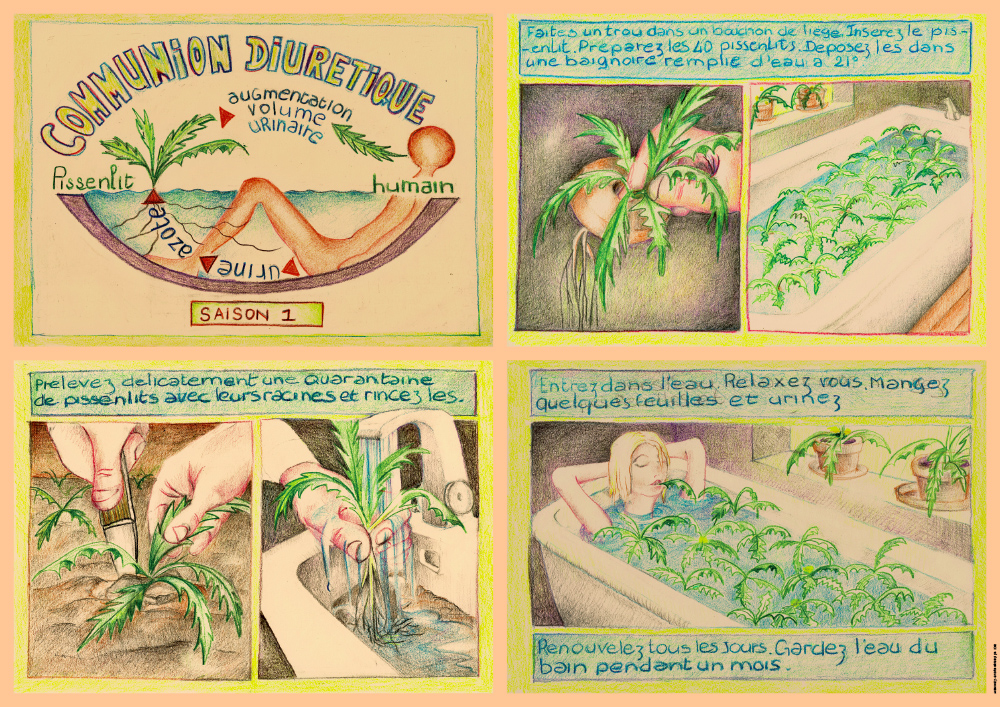 COMMUNION DIURETIQUE
augmentation
volume
uRinaire
Pissenlit
humain
azote
urine
SAISON 1
Faites un trou dans un bouchon de liege. Inserez le pis-
-enlit. Préparez les 40 pissenlits. Deposez les dans
une baignoire remplie d'eau a 21°
Prelevez delicatement une Quarantaine
de pissenlits avec leurs racines et rincez les.
Entrez dans l'eau. Relaxez vous. Mangez
quelques feuilles et urinez
Renouvelez tous les jours. Gardez l'eau du
bain pendant un mois.